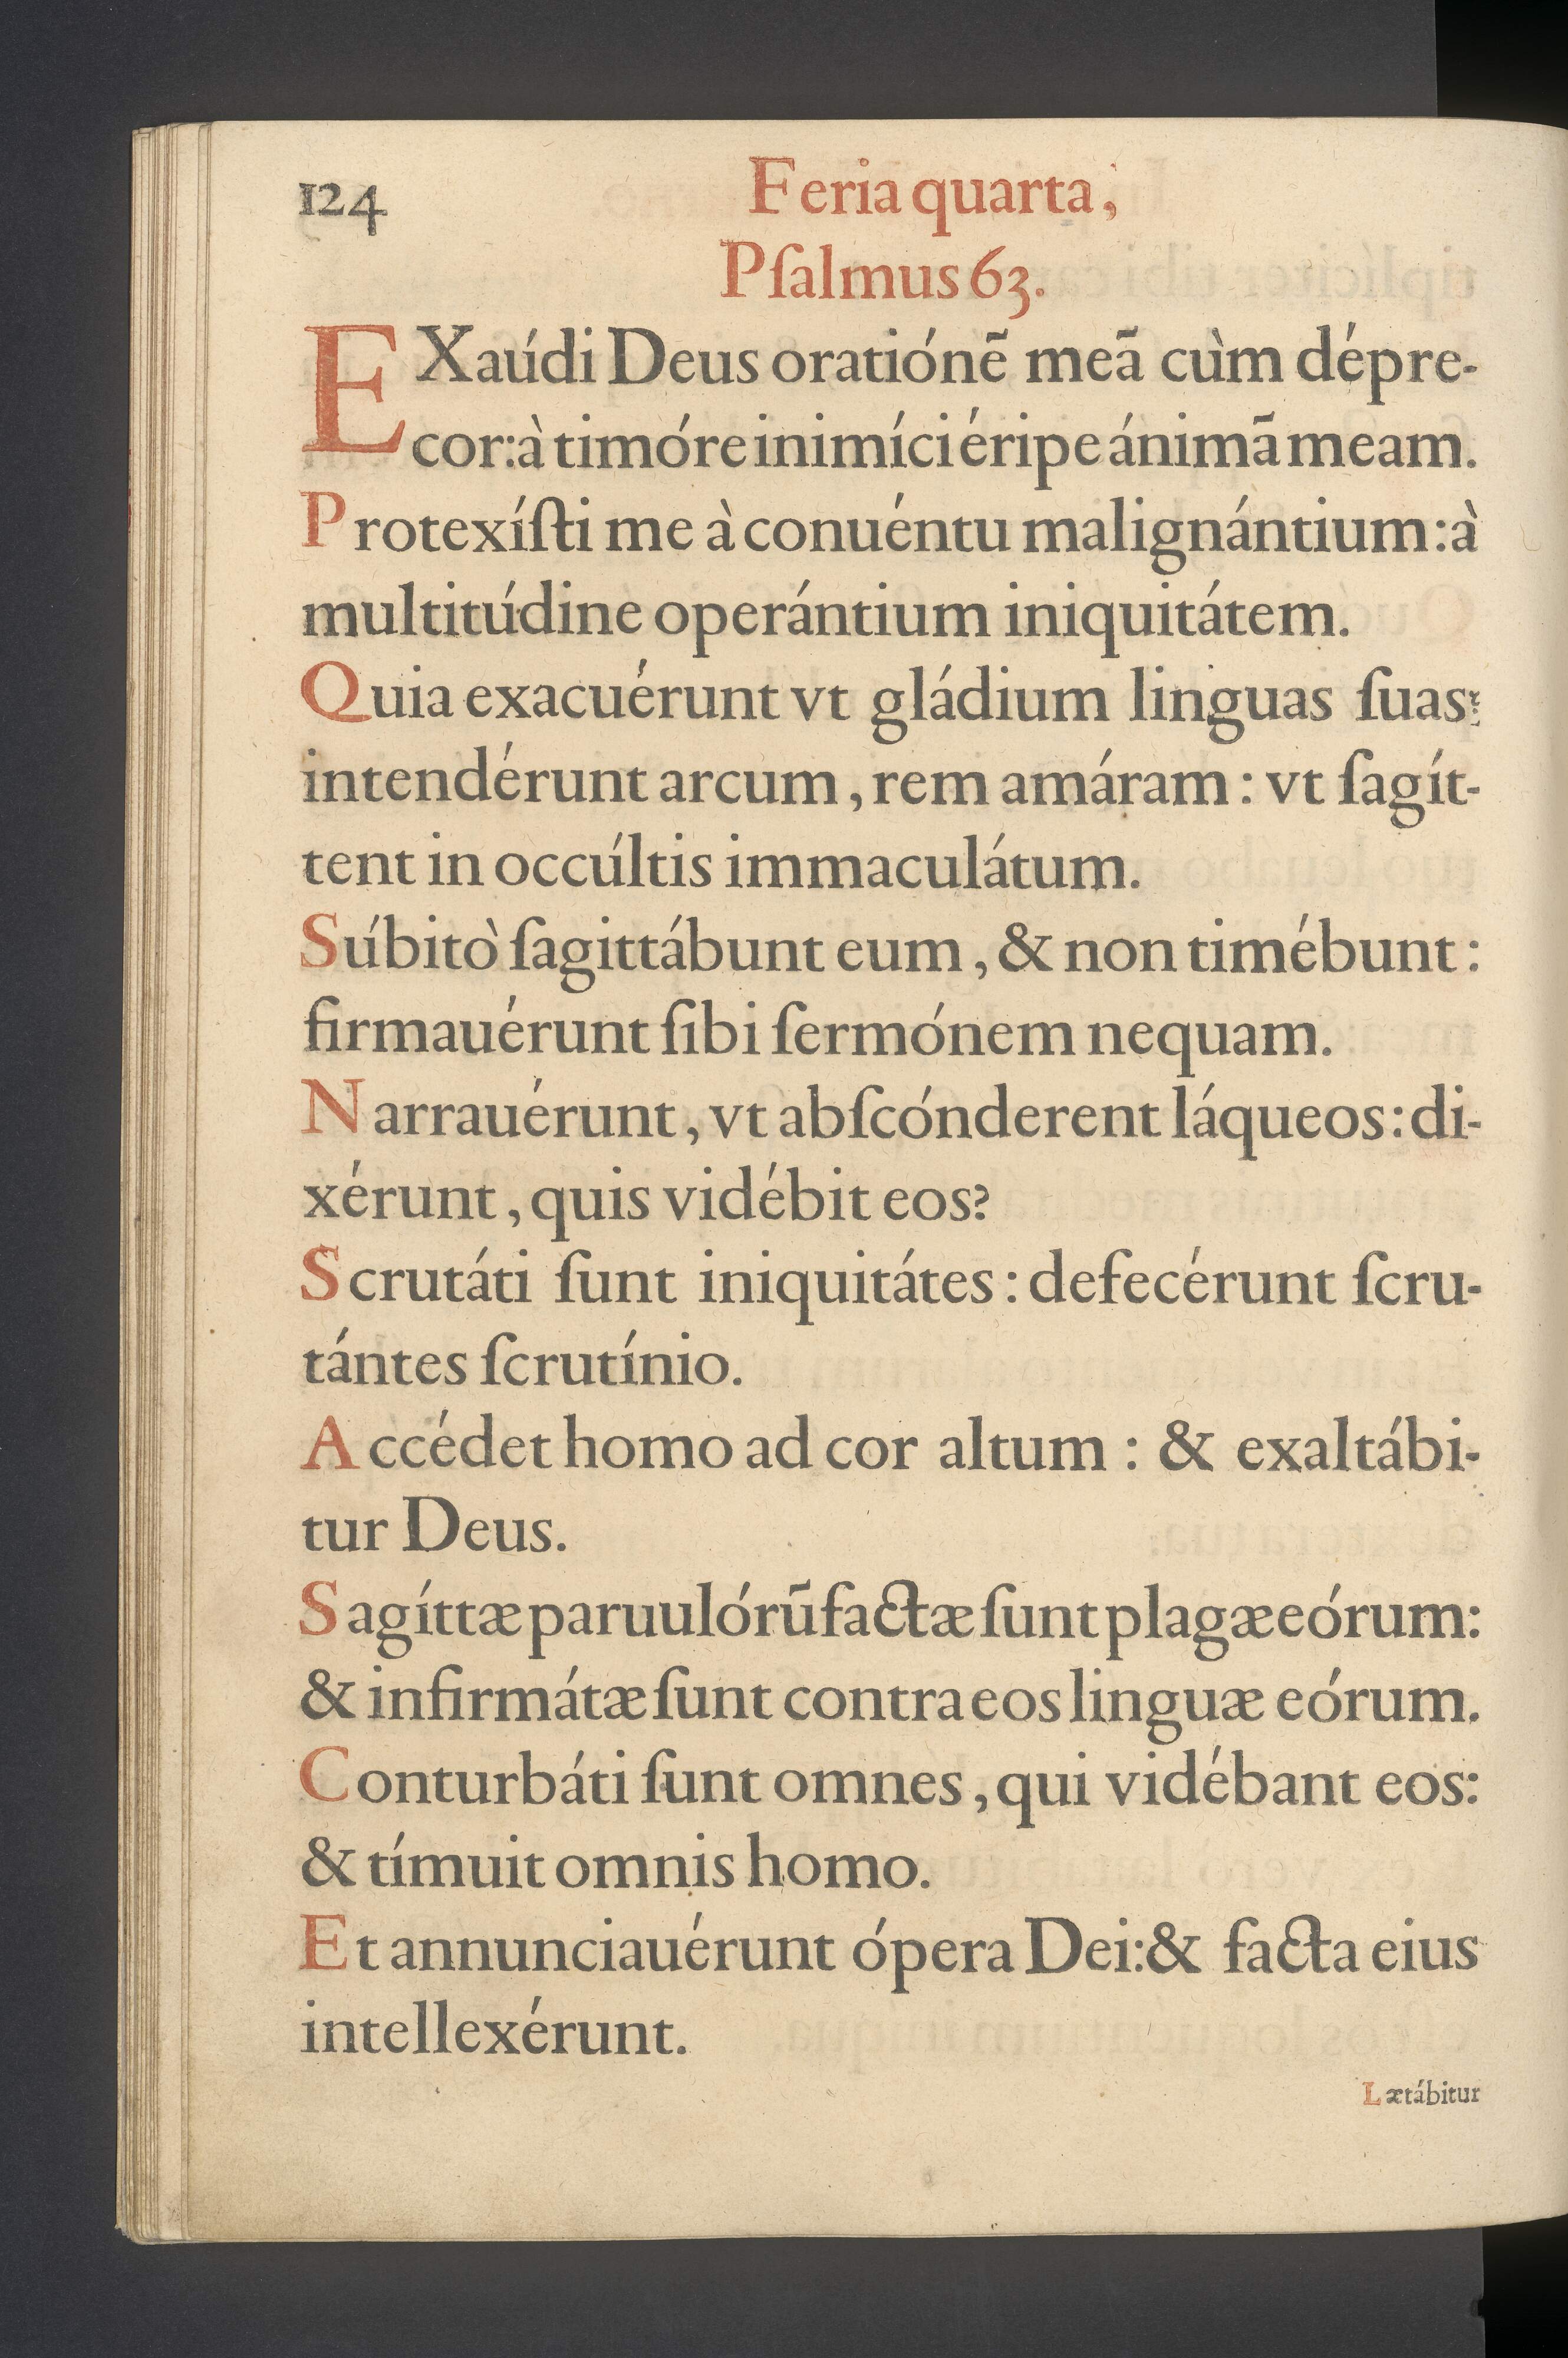 124
Feria quarta,
Pſalmus 63.
EXaúdi Deus oratiónē meā cùm dépre-
cor: à timóre inimíci éripe ánimā meam.
Protexíſti me à conuéntu malignántium: à
multitúdine operántium iniquitátem.
Quia exacuérunt vt gládium linguas ſuas:
intendérunt arcum, rem amáram: vt ſagít-
tent in occúltis immaculátum.
Súbitò ſagittábunt eum, & non timébunt:
firmauérunt ſibi ſermónem nequam.
Narrauérunt, vt abſcónderent láqueos: di-
xérunt, quis vidébit eos?
Scrutáti ſunt iniquitátes: defecérunt ſcru-
tántes ſcrutínio.
Accédet homo ad cor altum: & exaltábi-
tur Deus.
Sagíttæ paruulórū factæ ſunt plagæ eórum:
& infirmátæ ſunt contra eos linguæ eórum.
Conturbáti ſunt omnes, qui vidébant eos:
& tímuit omnis homo.
Et annunciauérunt ópera Dei: & facta eius
intellexérunt.
Lætábitur